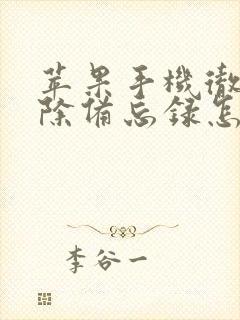 苹果手機徹
除備忘録怎
李谷一